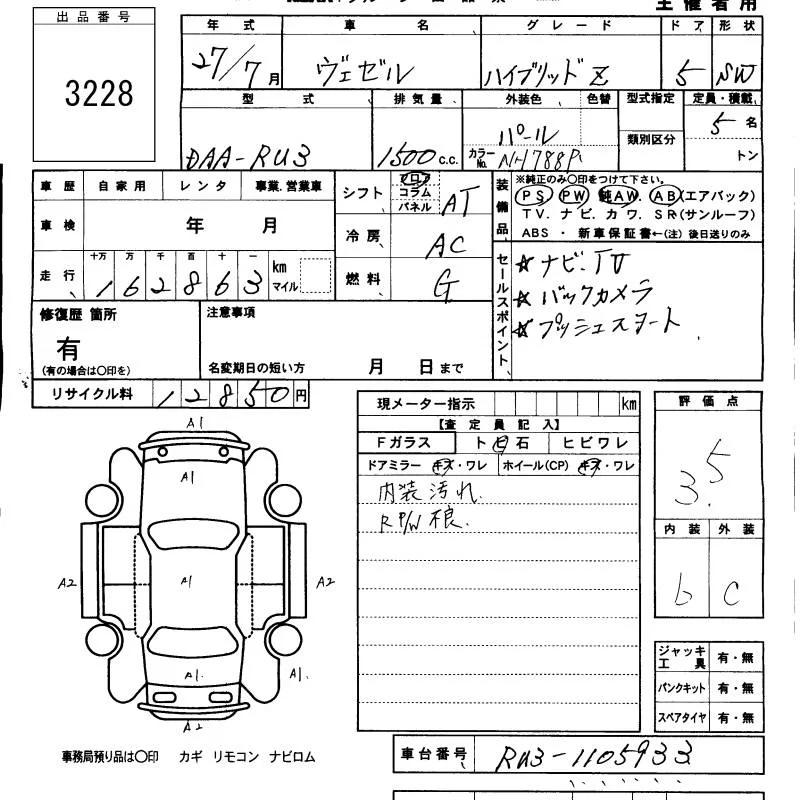 主催者用
出品番号
3228
年式 車名 グレード ドア 形状
27/7月 ヴェゼル ハイブリッドZ 5 SW
型式 排気量 外装色 色替 型式指定 定員・積載
DAA-RU3 1500c.c. パール 類別区分 5名
カラーNo. NH788P トン
車歴 自家用 レンタ 事業.営業車
シフト フロア コラム パネル AT
車検 年 月
冷房 AC
走行 十万 万 千 百 十 一
162863 km マイル
燃料 G
装備品
※純正のみ〇印をつけて下さい。
PS PW 純AW. AB(エアバック)
TV. ナビ. カワ. SR(サンルーフ)
ABS ・ 新車保証書←(注) 後日送りのみ
セールスポイント
☆ ナビ.TV
☆ バックカメラ
☆ プッシュスタート
修復歴 箇所
有
(有の場合は〇印を)
注意事項
名変期日の短い方 月 日まで
リサイクル料 12850円
現メーター指示 km
【査定員記入】
Fガラス ト日石 ヒビワレ
ドアミラー キズ・ワレ ホイール(CP) キズ・ワレ
内装汚れ.
R P/W 不良.
評価点
3.5
内装 外装
b C
ジャッキ工具 有・無
パンクキット 有・無
スペアタイヤ 有・無
A1
A1
A2 A1 A2
A1. A1.
A2
事務局預り品は〇印 カギ リモコン ナビロム
車台番号 RU3-1105933